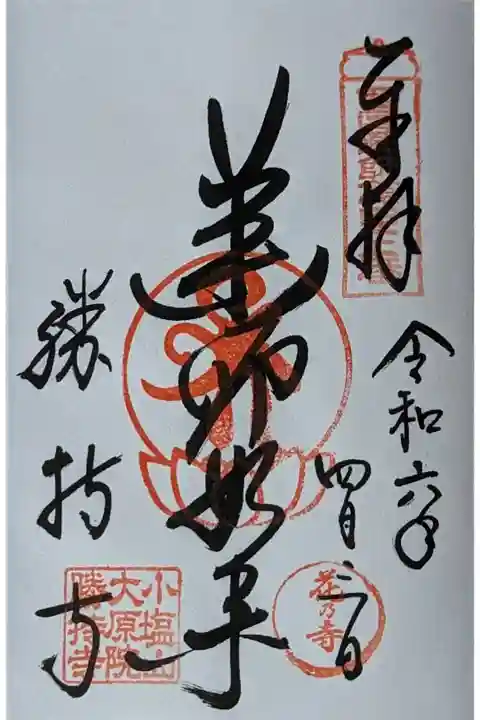 奉拝
令和六年
四月二日
薬師如来
勝持寺
花乃寺
小塩山
大原院
勝持寺